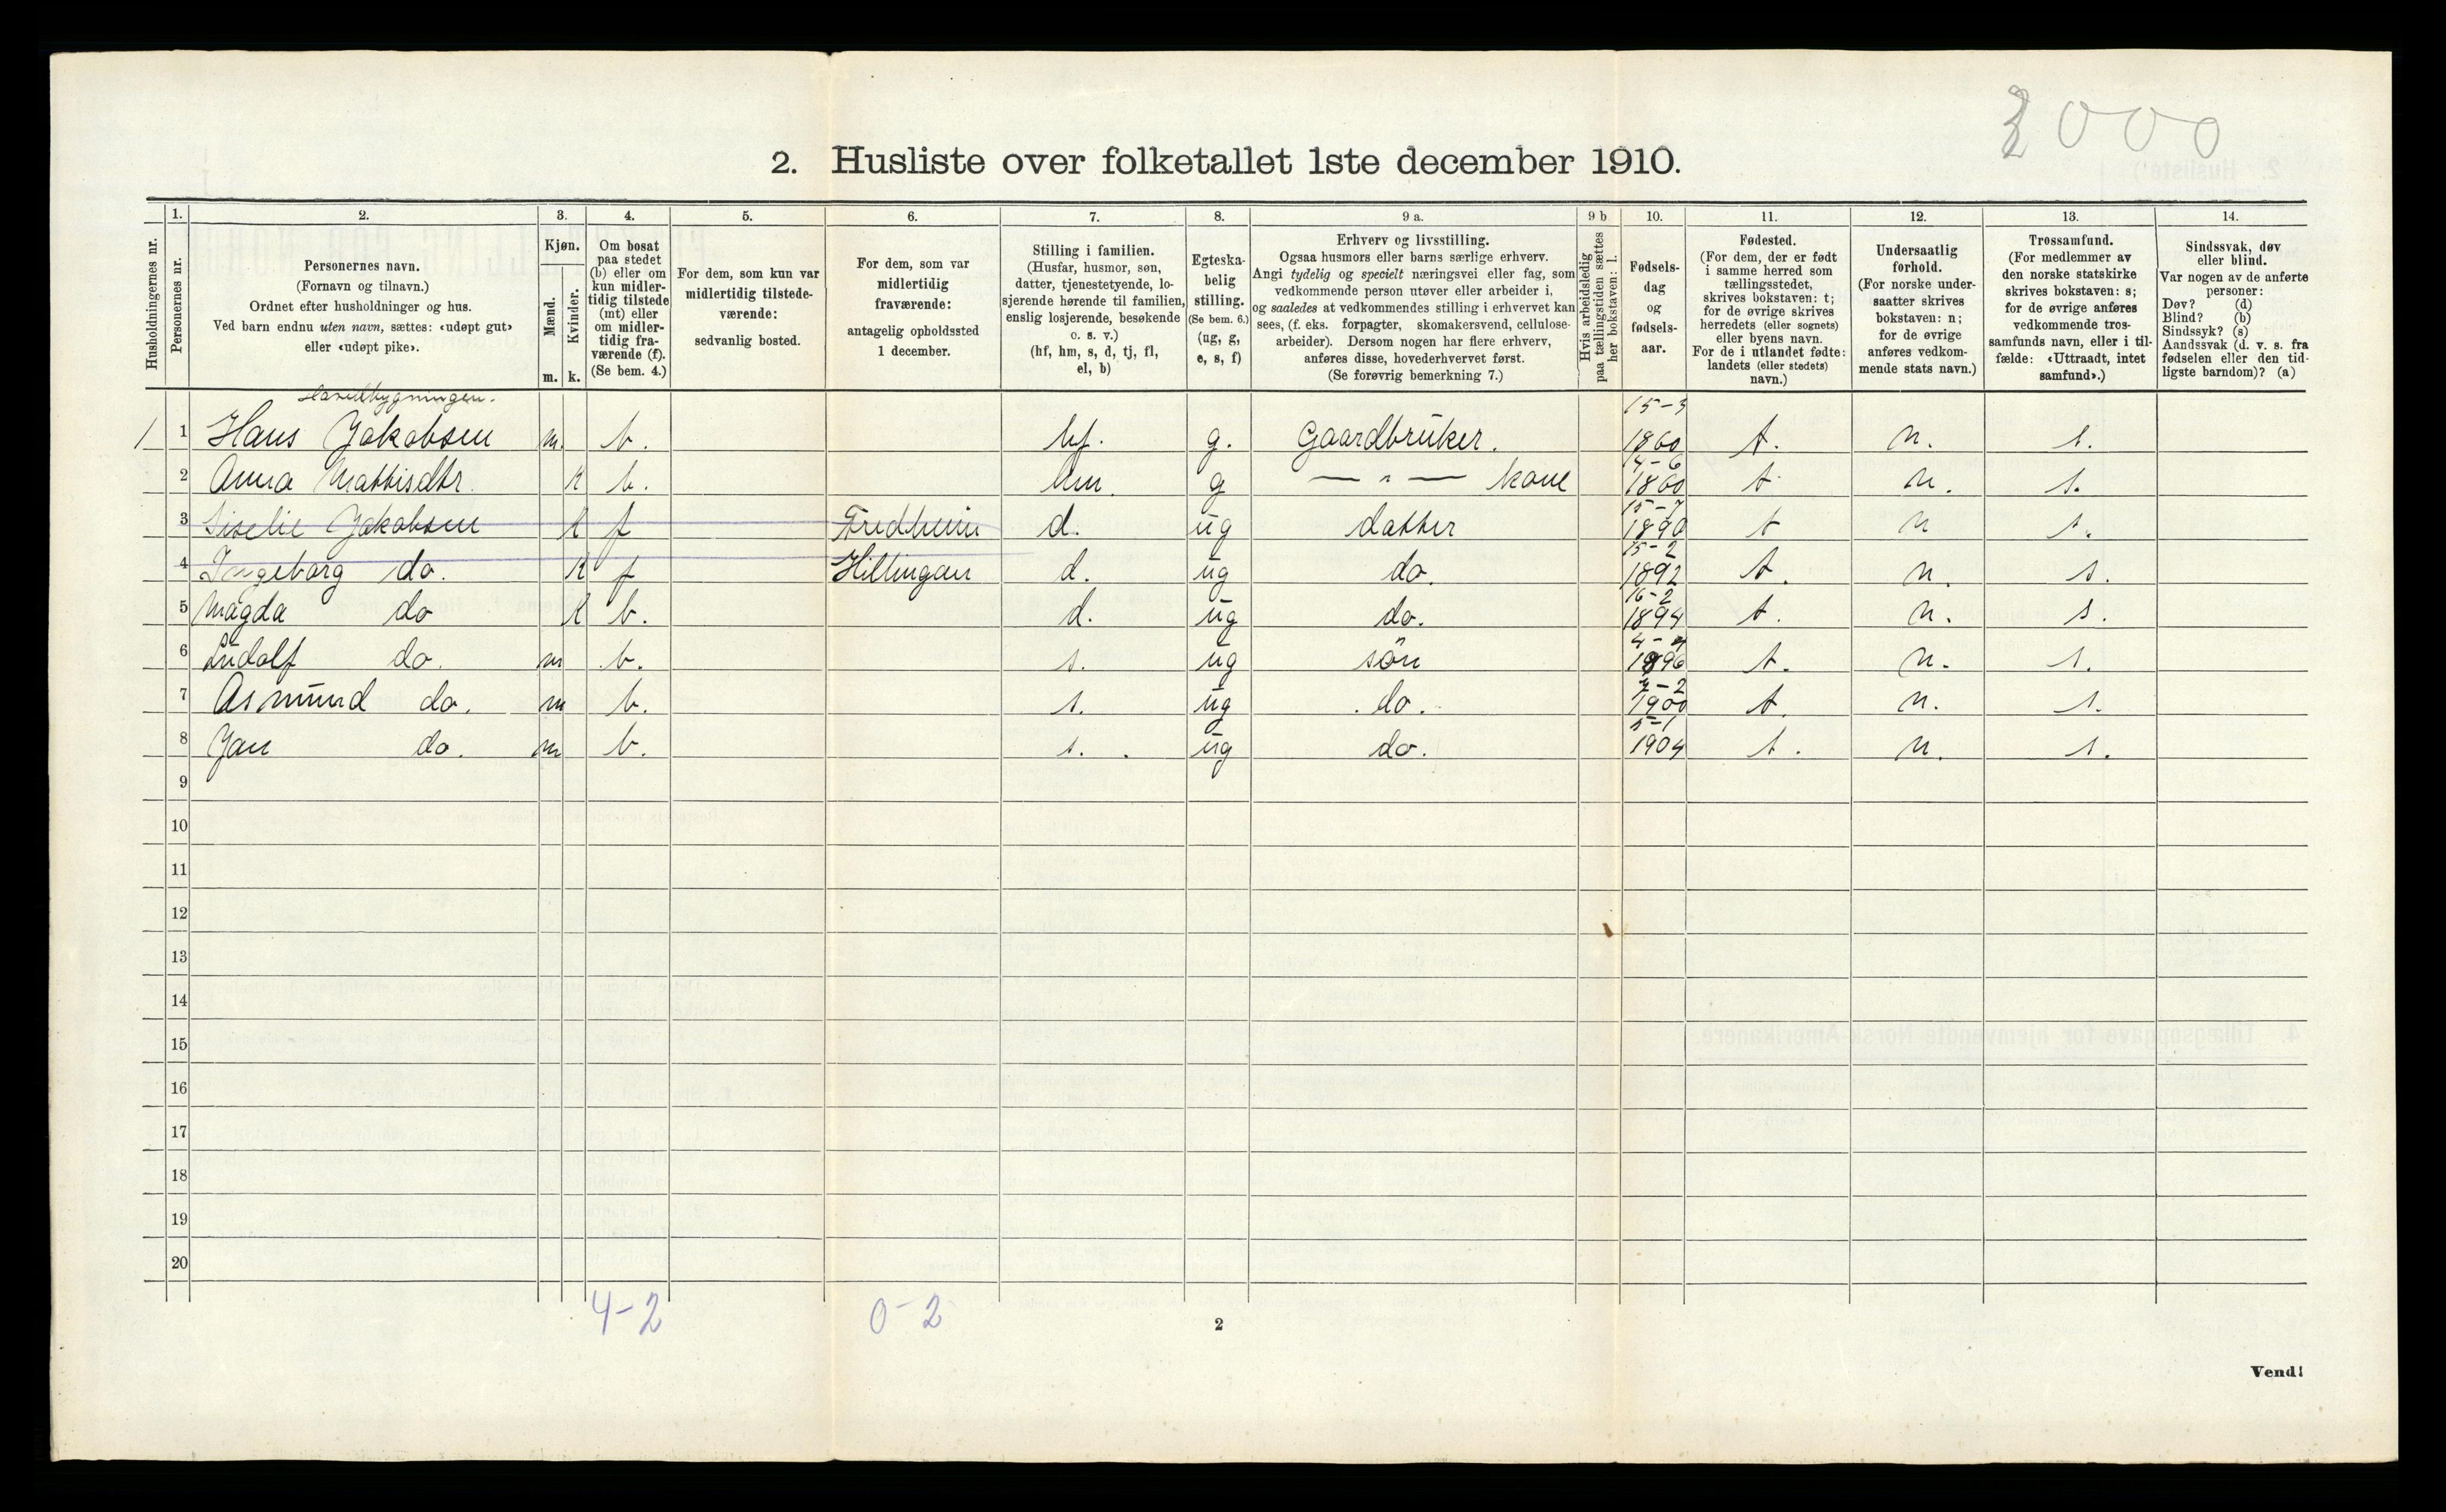 2000
2. Husliste over folketallet 1ste december 1910.
Husholdningernes nr.
1.
Personernes nr.
2.
Personernes navn.
(Fornavn og tilnavn.)
Ordnet efter husholdninger og hus.
Ved barn endnu uten navn, sættes: «udøpt gut»
eller «udøpt pike».
3.
Kjøn.
Mænd.
Kvinder.
m. k.
4.
Om bosat
paa stedet
(b) eller om
kun midler-
tidig tilstede
(mt) eller
om midler-
tidig fra-
værende (f).
(Se bem. 4.)
5.
For dem, som kun var
midlertidig tilstede-
værende:
sedvanlig bosted.
6.
For dem, som var
midlertidig
fraværende:
antagelig opholdssted
1 december.
7.
Stilling i familien.
(Husfar, husmor, søn,
datter, tjenestetyende, lo-
sjerende hørende til familien,
enslig losjerende, besøkende
o. s. v.)
(hf, hm, s, d, tj, fl,
el, b)
8.
Egteska-
belig
stilling.
(Se bem. 6.)
(ug, g,
e, s, f)
9 a.
Erhverv og livsstilling.
Ogsaa husmors eller barns særlige erhverv.
Angi tydelig og specielt næringsvei eller fag, som
vedkommende person utøver eller arbeider i,
og saaledes at vedkommendes stilling i erhvervet kan
sees, (f. eks. forpagter, skomakersvend, cellulose-
arbeider). Dersom nogen har flere erhverv,
anføres disse, hovederhvervet først.
(Se forøvrig bemerkning 7.)
9 b
Hvis arbeidsledig
paa tællingstiden sættes
her bokstaven: l.
10.
Fødsels-
dag
og
fødsels-
aar.
11.
Fødested.
(For dem, der er født
i samme herred som
tællingsstedet,
skrives bokstaven: t;
for de øvrige skrives
herredets (eller sognets)
eller byens navn.
For de i utlandet fødte:
landets (eller stedets)
navn.)
12.
Undersaatlig
forhold.
(For norske under-
saatter skrives
bokstaven: n;
for de øvrige
anføres vedkom-
mende stats navn.)
13.
Trossamfund.
(For medlemmer av
den norske statskirke
skrives bokstaven: s;
for de øvrige anføres
vedkommende tros-
samfunds navn, eller i til-
fælde: «Uttraadt, intet
samfund».)
14.
Sindssvak, døv
eller blind.
Var nogen av de anførte
personer:
Døv? (d)
Blind? (b)
Sindssyk? (s)
Aandssvak (d. v. s. fra
fødselen eller den tid-
ligste barndom)? (a)
1 1 Hans Jakobsen m. b. hf. g. Gaardbruker. 15-3 1860 t. n. s.
2 Anna Mathisdtr. K b. hm. g — " — kone 14-6 1860 t. n. s.
3 Jakobsen K f Fredheim d. ug datter 15-7 1890 t n s.
4 Ingeborg do. K f Hillingan d. ug do. 15-2 1892 t. n. s.
5 Magda do K b. d. ug do. 16-2 1894 t. n. s.
6 Ludolf do. m b. s. ug sön 1896 t. n. s.
7 Asmund do. m b. s. ug do. 4-2 1900 t. n. s.
8 Jan do. m b. s. ug do. 5-1 1904 t. n. s.
9
10
11
12
13
14
15
16
17
18
19
20
4-2 0-2
2
Vend!